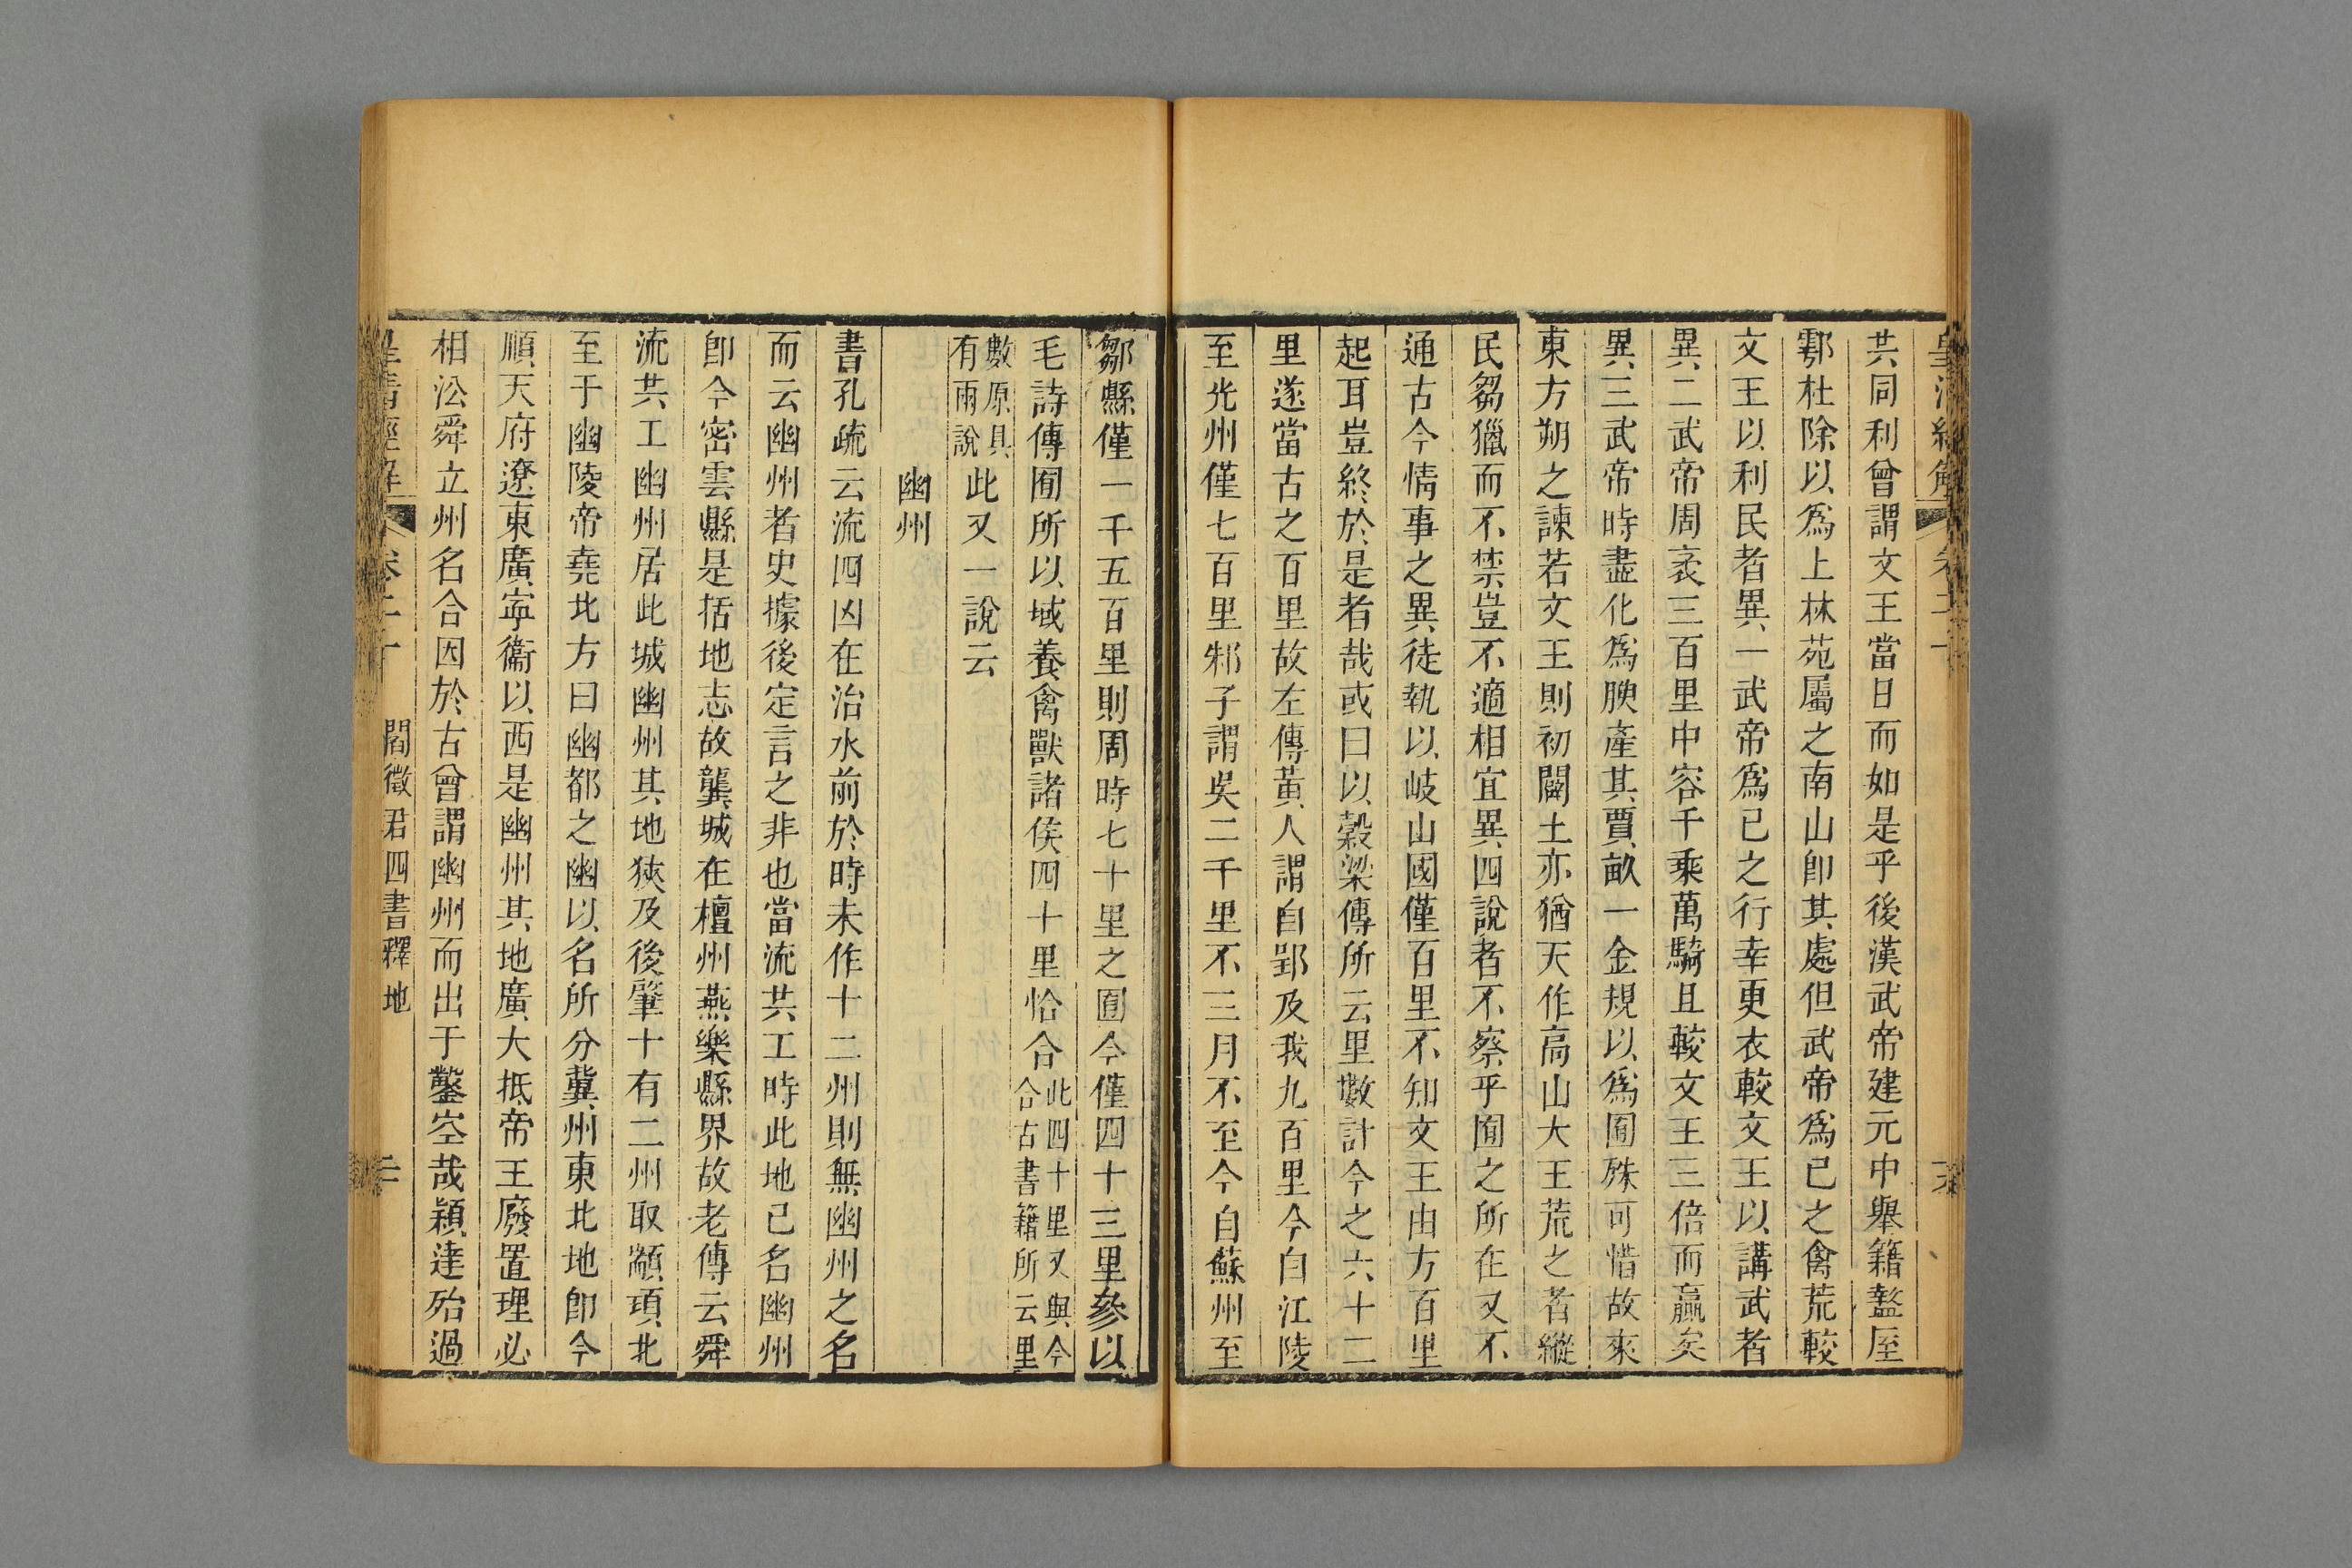 共同利曾謂文王當日而如是乎後漢武帝建元中舉籍盩厔
鄠杜除以爲上林苑屬之南山卽其處但武帝爲已之禽荒較
文王以利民者異一武帝爲已之行幸更衣較文王以講武者
異二武帝周袤三百里中容千乘萬騎且較文王三倍而贏矣
異三武帝時盡化爲腴產其賈畝一金規以爲囿殊可惜故來
東方朔之諫若文王則初闢土亦猶天作高山大王荒之者縱
民芻獵而不禁豈不適相宜異四說者不察乎囿之所在又不
通古今情事之異徒執以岐山國僅百里不知文王由方百里
起耳豈終於是者哉或曰以穀梁傳所云里數計今之六十二
里遂當古之百里故左傳黃人謂自郢及我九百里今自江陵
至光州僅七百里邾子謂吳二千里不三月不至今自蘇州至
鄒縣僅一千五百里則周時七十里之囿今僅四十三里參以
毛詩傳囿所以域養禽獸諸侯四十里恰合此四十里又與今合古書籍所云里
數原具有兩說此又一說云
幽州
書孔疏云流四凶在治水前於時未作十二州則無幽州之名
而云幽州者史據後定言之非也當流共工時此地已名幽州
卽今密雲縣是括地志故龔城在檀州燕樂縣界故老傳云舜
流共工幽州居此城幽州其地狹及後肇十有二州取顓頊北
至于幽陵帝堯北方曰幽都之幽以名所分冀州東北地卽今
順天府遼東廣寧衞以西是幽州其地廣大抵帝王廢置理必
相㳂舜立州名合因於古曾謂幽州而出于鑿空哉穎達殆過
皇清經解 卷二十 閻徵君四書釋地 二